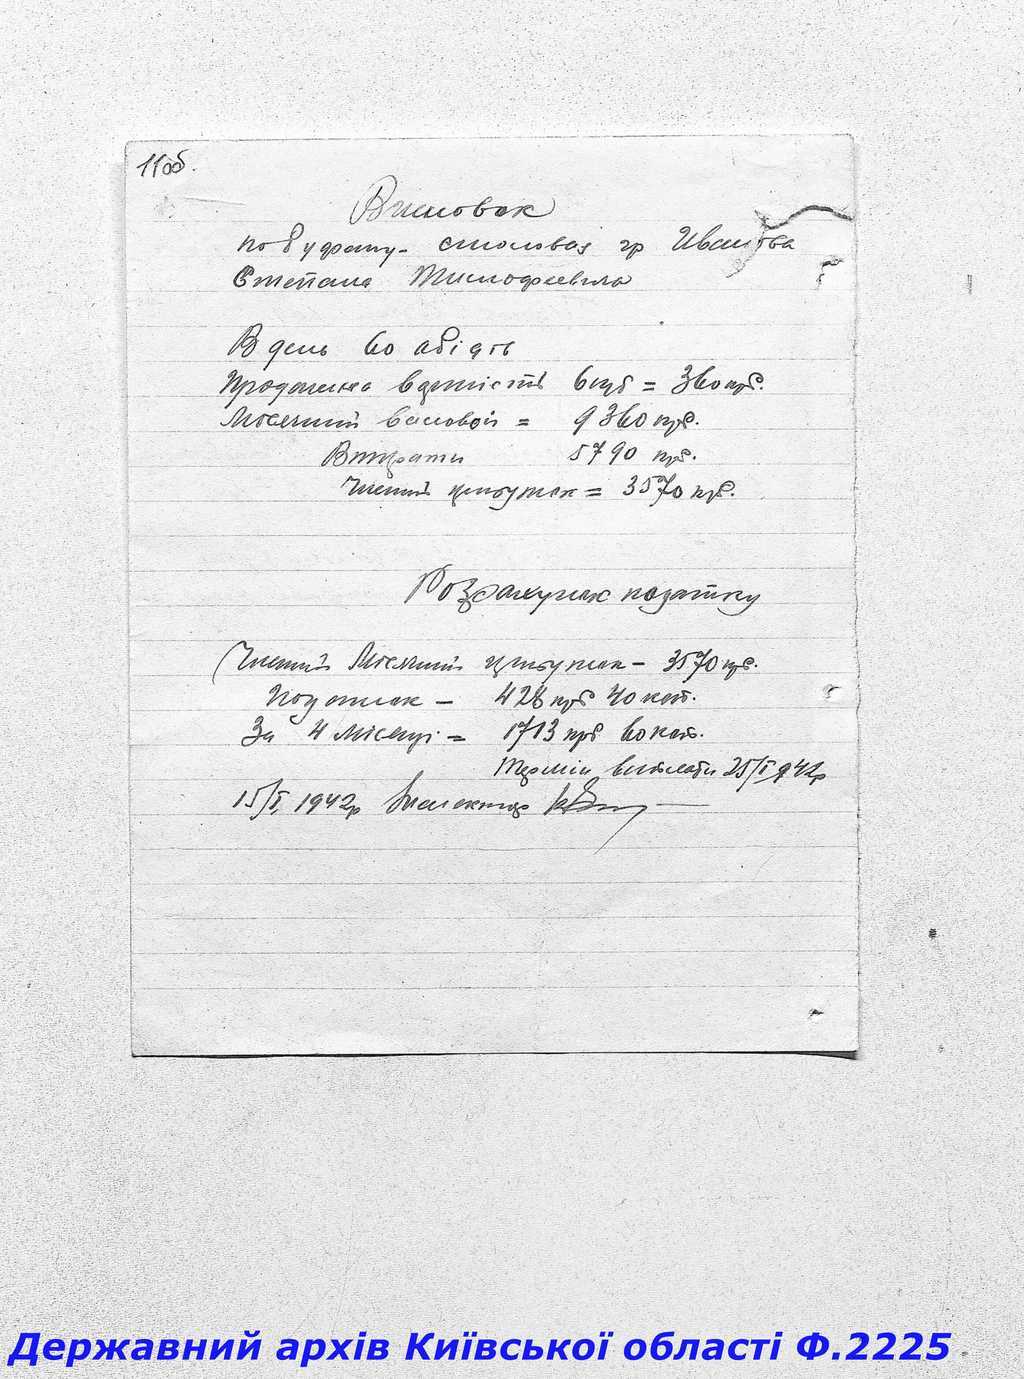 11об.
Висновок
по буфету - столовая гр Иванова
Степана Тимофеевича
В день 60 абідів
Продажна вартість 6 крб = 360 крб.
Місячний валовой = 9360 крб.
Витрати 5790 крб.
Чистий прибуток = 3570 крб.
Розрахунок податку
Чистий місячний прибуток - 3570 крб.
Податок - 428 крб 40 коп.
За 4 місяці = 1713 крб 60 коп.
Термін виплати 25/I 942р
15/I 1942р Инспектор
Державний архів Київської області Ф.2225